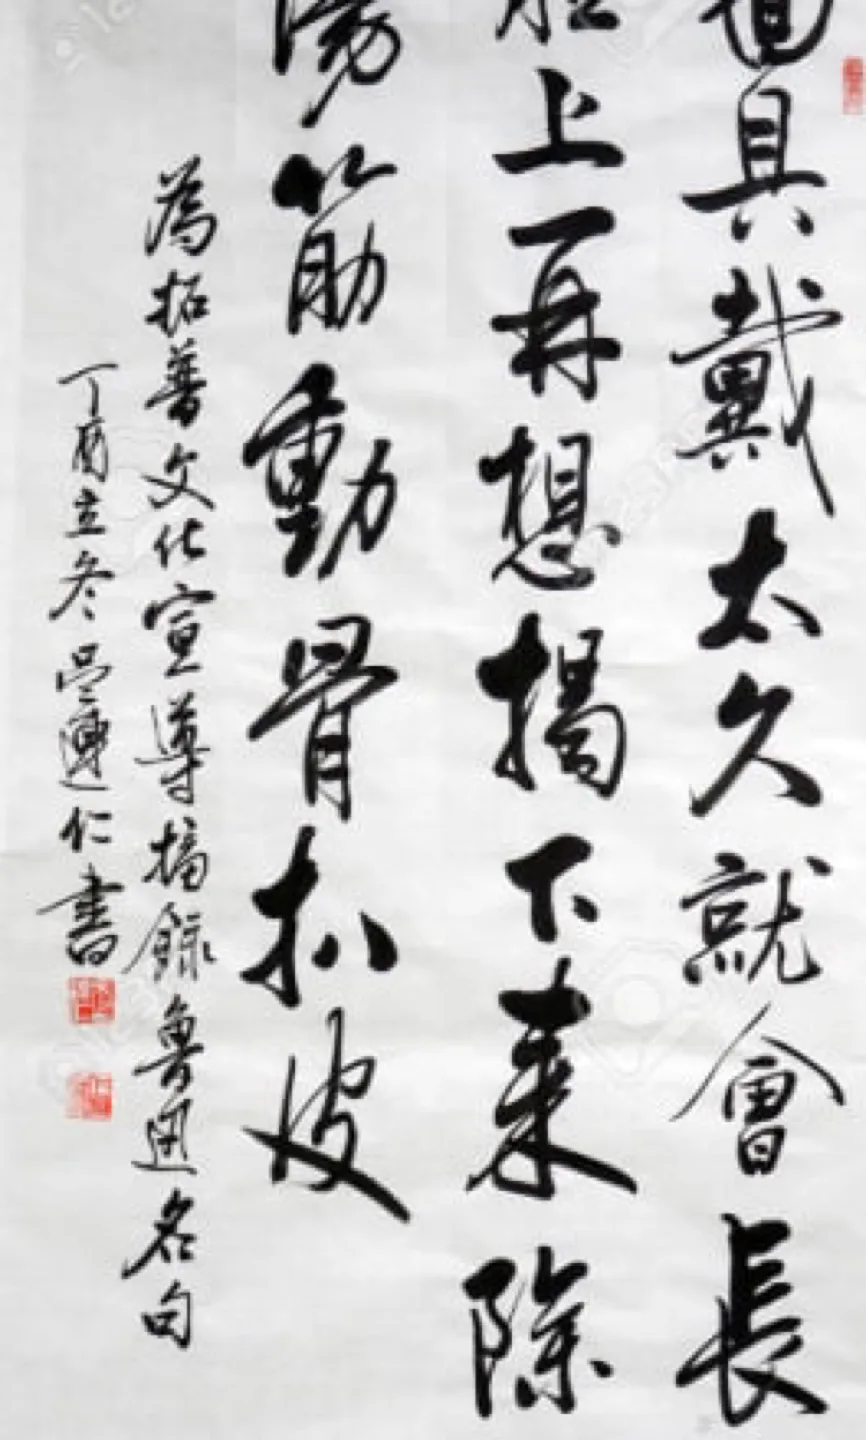 面具戴太久就會長
臉上再想揭下來除
傷筋動骨扒皮
為拓普文化宣導摘錄魯迅名句
丁酉立冬 連仁書